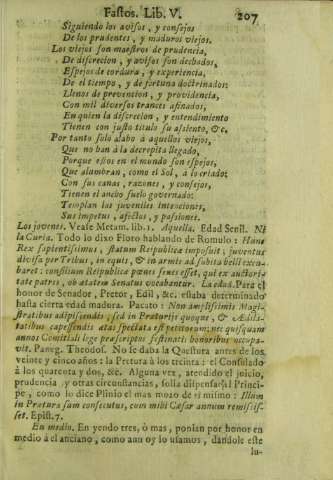 Fastos. Lib. V. 207
Siguiendo los avisos, y consejos
De los prudentes, y maduros viejos.
Los viejos son maestros de prudencia,
De discrecion, y avisos son dechados,
Espejos de cordura, y experiencia,
De el tiempo, y de fortuna doctrinados:
Llenos de prevencion, y providencia,
Con mil diversos trances afinados,
En quien la discrecion, y entendimiento
Tienen con justo titulo su assiento, &c.
Por tanto solo alabo à aquellos viejos,
Que no ban à la decrepita llegado,
Porque essos en el mundo son espejos,
Que alambran, como el Sol, a lo criado:
Con sus canas, razones, y consejos,
Tienen el ancho suelo governado:
Templan las juveniles intenciones,
Sus impetus, afectos, y passiones.
Los jovenes. Vease Metam. lib. 1. Aquella. Edad Senil. Ni
la Curia. Todo lo dixo Floro hablando de Romulo: Hunc
Rex sapientissimus, statum Reipublicæ imposuit, juventus
divisa per Tribus, in equis, & in armis ad subita belli excu-
baret: consilium Reipublicæ pœnes senes esset, qui ex auctori-
tate patres, ob ætatem Senatus vocabantur. La edad. Para el
honor de Senador, Pretor, Edil, &c. estaba determinado
hasta cierta edad madura. Pacato: Non amplissimis Magis-
stratibus adipiscendis, sed in Præturis quoque, & Ædili-
tatibus capessendis ætas spectata est petitorum; nec quisquam
annos Comitiali lege præscriptos festinati honoribus occupa-
vit. Paneg. Theodos. No se daba la Questura antes de los
veinte y cinco años: la Pretura à los treinta: el Consulado
à los quarenta y dos, &c. Alguna vez, atendido el juicio,
prudencia y otras circunstancias, solia dispensarsel Princi-
pe, como lo dice Plinio el mas mozo de sì mismo: Illum
in Prætura sum consecutus, cum mihi Cæsar annum remisis-
set. Epist. 7.
En medio. En yendo tres, ò mas, ponian por honor en
medio à el anciano, como aun oy lo usamos, dandole este
lu-